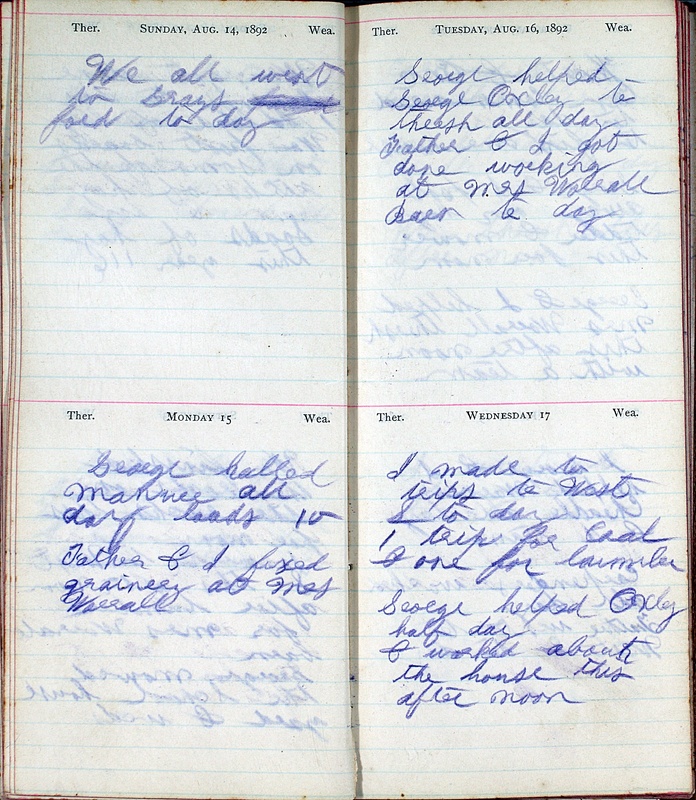 Ther. SUNDAY, AUG. 14, 1892 Wea.
We all went
to Grays
ford to day
Ther. MONDAY 15 Wea.
George halled
Manuee all
day loads 10
Father & I fixed
grainery at Mrs
Worrall
Ther. TUESDAY, AUG. 16, 1892 Wea.
George helped
George Oxley to
thersh all day
Father & I got
done working
at Mrs Worrall
Baen to day
Ther. WEDNESDAY 17 Wea.
I made to
trips to West
to day
1 trip for Coal
& one for laumber
George helped Oxley
half day
& worked about
the house this
after noon